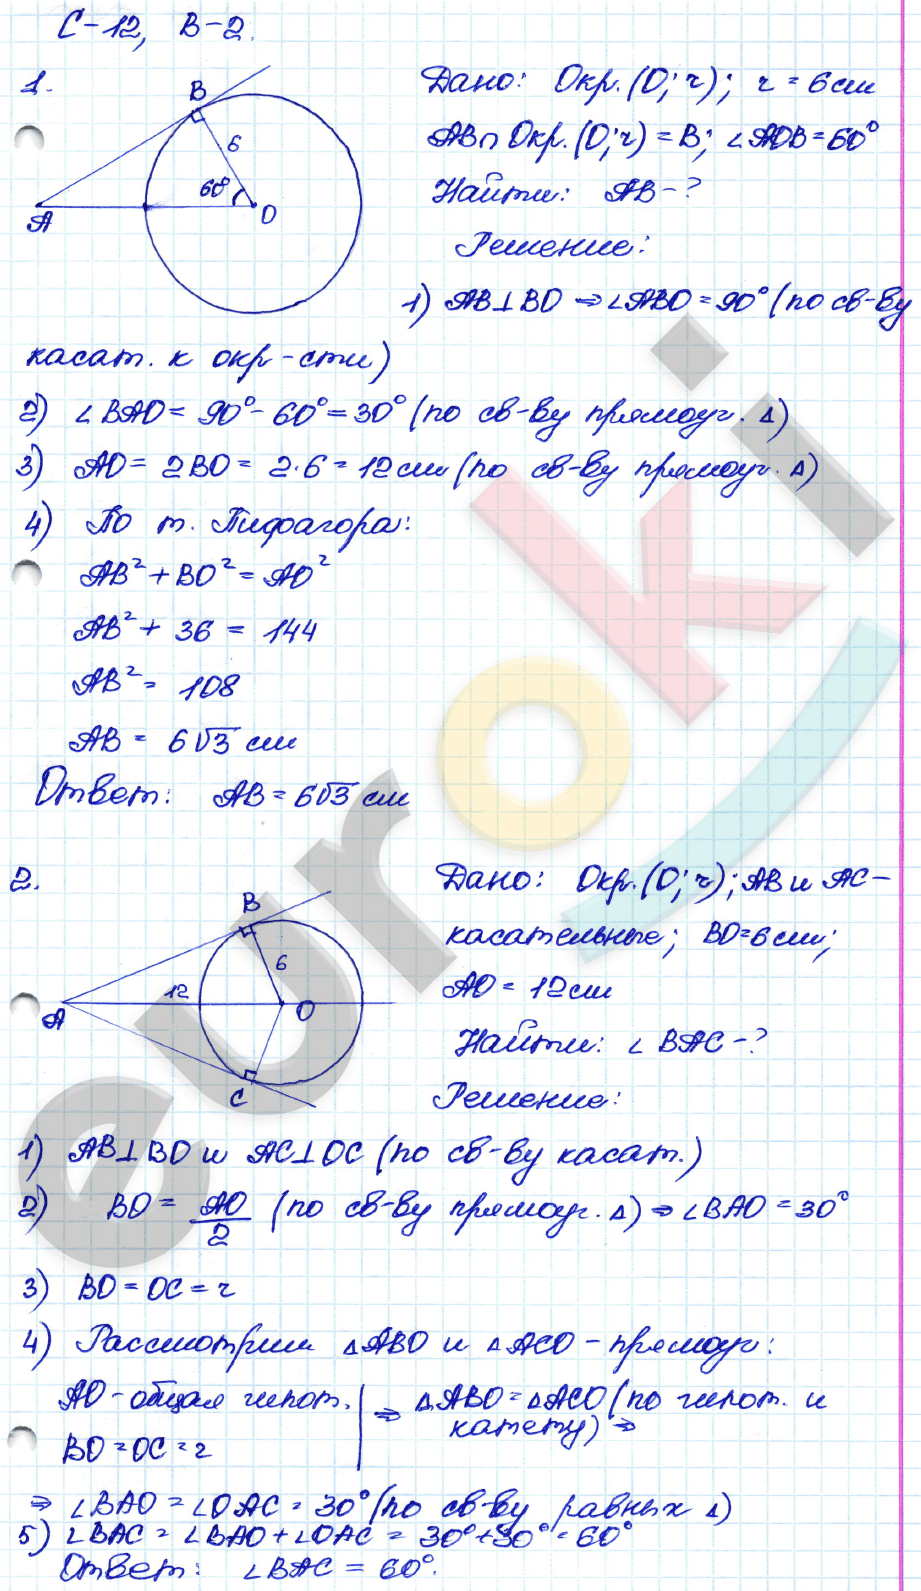 С-12, В-2.
1.
B
6
60°
A
O
Дано: Окр.(O; r); r = 6 см
AB∩Окр.(O; r) = B; ∠AOB = 60°
Найти: AB - ?
Решение:
1) AB⊥BO ⇒ ∠ABO = 90° (по св-ву
касат. к окр-сти)
2) ∠BAO = 90° - 60° = 30° (по св-ву прямоуг. Δ)
3) AO = 2BO = 2·6 = 12 см (по св-ву прямоуг. Δ)
4) По т. Пифагора:
AB² + BO² = AO²
AB² + 36 = 144
AB² = 108
AB = 6√3 см
Ответ: AB = 6√3 см
2.
B
6
12
A
O
C
Дано: Окр.(O; r); AB и AC -
касательные; BO = 6 см;
AO = 12 см
Найти: ∠BAC - ?
Решение:
1) AB⊥BO и AC⊥OC (по св-ву касат.)
2) BO = AO/2 (по св-ву прямоуг. Δ) ⇒ ∠BAO = 30°
3) BO = OC = r
4) Рассмотрим ΔABO и ΔACO - прямоуг:
AO - общая гипот.
BO = OC = r
⇒ ΔABO = ΔACO (по гипот. и
катету) ⇒
⇒ ∠BAO = ∠OAC = 30° (по св-ву равных Δ)
5) ∠BAC = ∠BAO + ∠OAC = 30° + 30° = 60°
Ответ: ∠BAC = 60°.
euroki